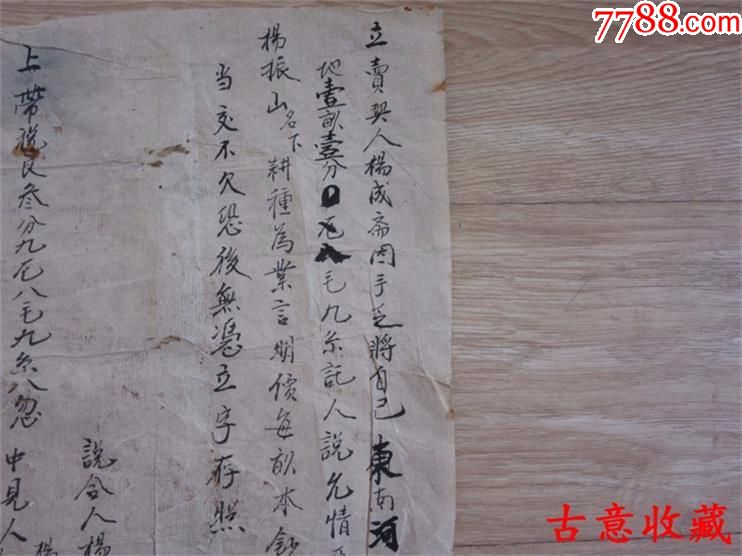 7788.com
立賣契人楊成齋因手乏將自己東南河
地壹畝壹分 厘 毛九糸託人說允情
楊振山名下耕種為業言明價每畝本
当交不欠恐後無憑立字存照
說合人楊
中見人楊
上帶稅良叁分九厘八毛九糸八忽
古意收藏